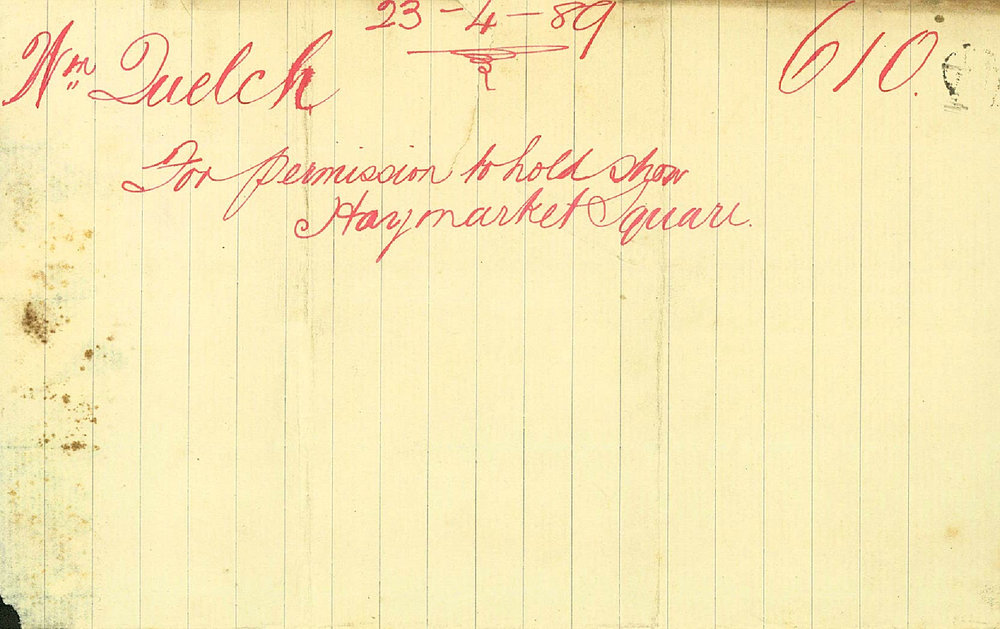 23-4-89
Wm Quelch 610.
For permission to hold show
Haymarket Square.